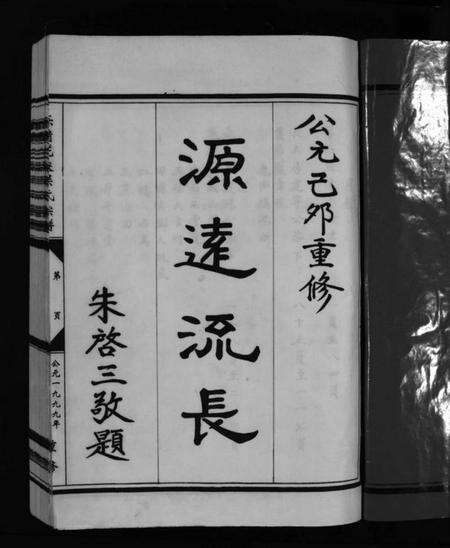 公元己卯重修
源遠流長
朱啓三敬題
第 頁
公元一九九九年 重修